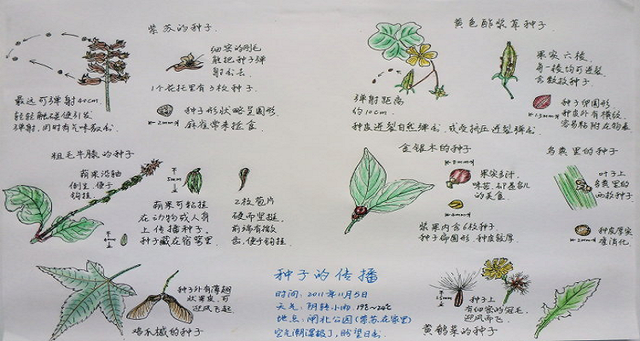 紫苏的种子
细密的刚毛
能把种子弹
射出去.
1个花托里有3枚种子.
最远可弹射40cm.
轻轻触碰便引发
弹射,同时有气味散出
种子形状略呈圆形
麻雀常来捡食
黄色酢浆草种子
果实六棱
每一棱均可迸裂
含数枚种子
弹射距离
约10cm.
种子卵圆形
种皮外有横纹
容易黏附在物表
种皮迸裂自然弹出,或受挤压迸裂弹出
粗毛牛膝的种子
蒴果沿轴
倒生,便于
钩挂.
蒴果可黏挂
在动物或人身
上传播种子.
种子藏在宿萼里
2枚苞片
硬而里挺,
前端有微
齿,便于钩挂
金银木的种子
果实多汁,
味苦,但是鸟儿
的美食
浆果内含6枚种子
种子卵圆形,种皮较厚.
鸟粪里的种子
叶子上
鸟粪里的
两枚种子
种皮厚实
难消化
种子外有薄翅
状果皮,可
迎风飞起
鸡爪槭的种子
种子的传播
时间:2011年11月5日
天气:阴转小雨,19℃-24℃
地点:闸北公园(紫苏在家里)
空气潮湿极了,盼望日出.
种子上
有细密的冠毛,
迎风而飞
黄鹌菜的种子